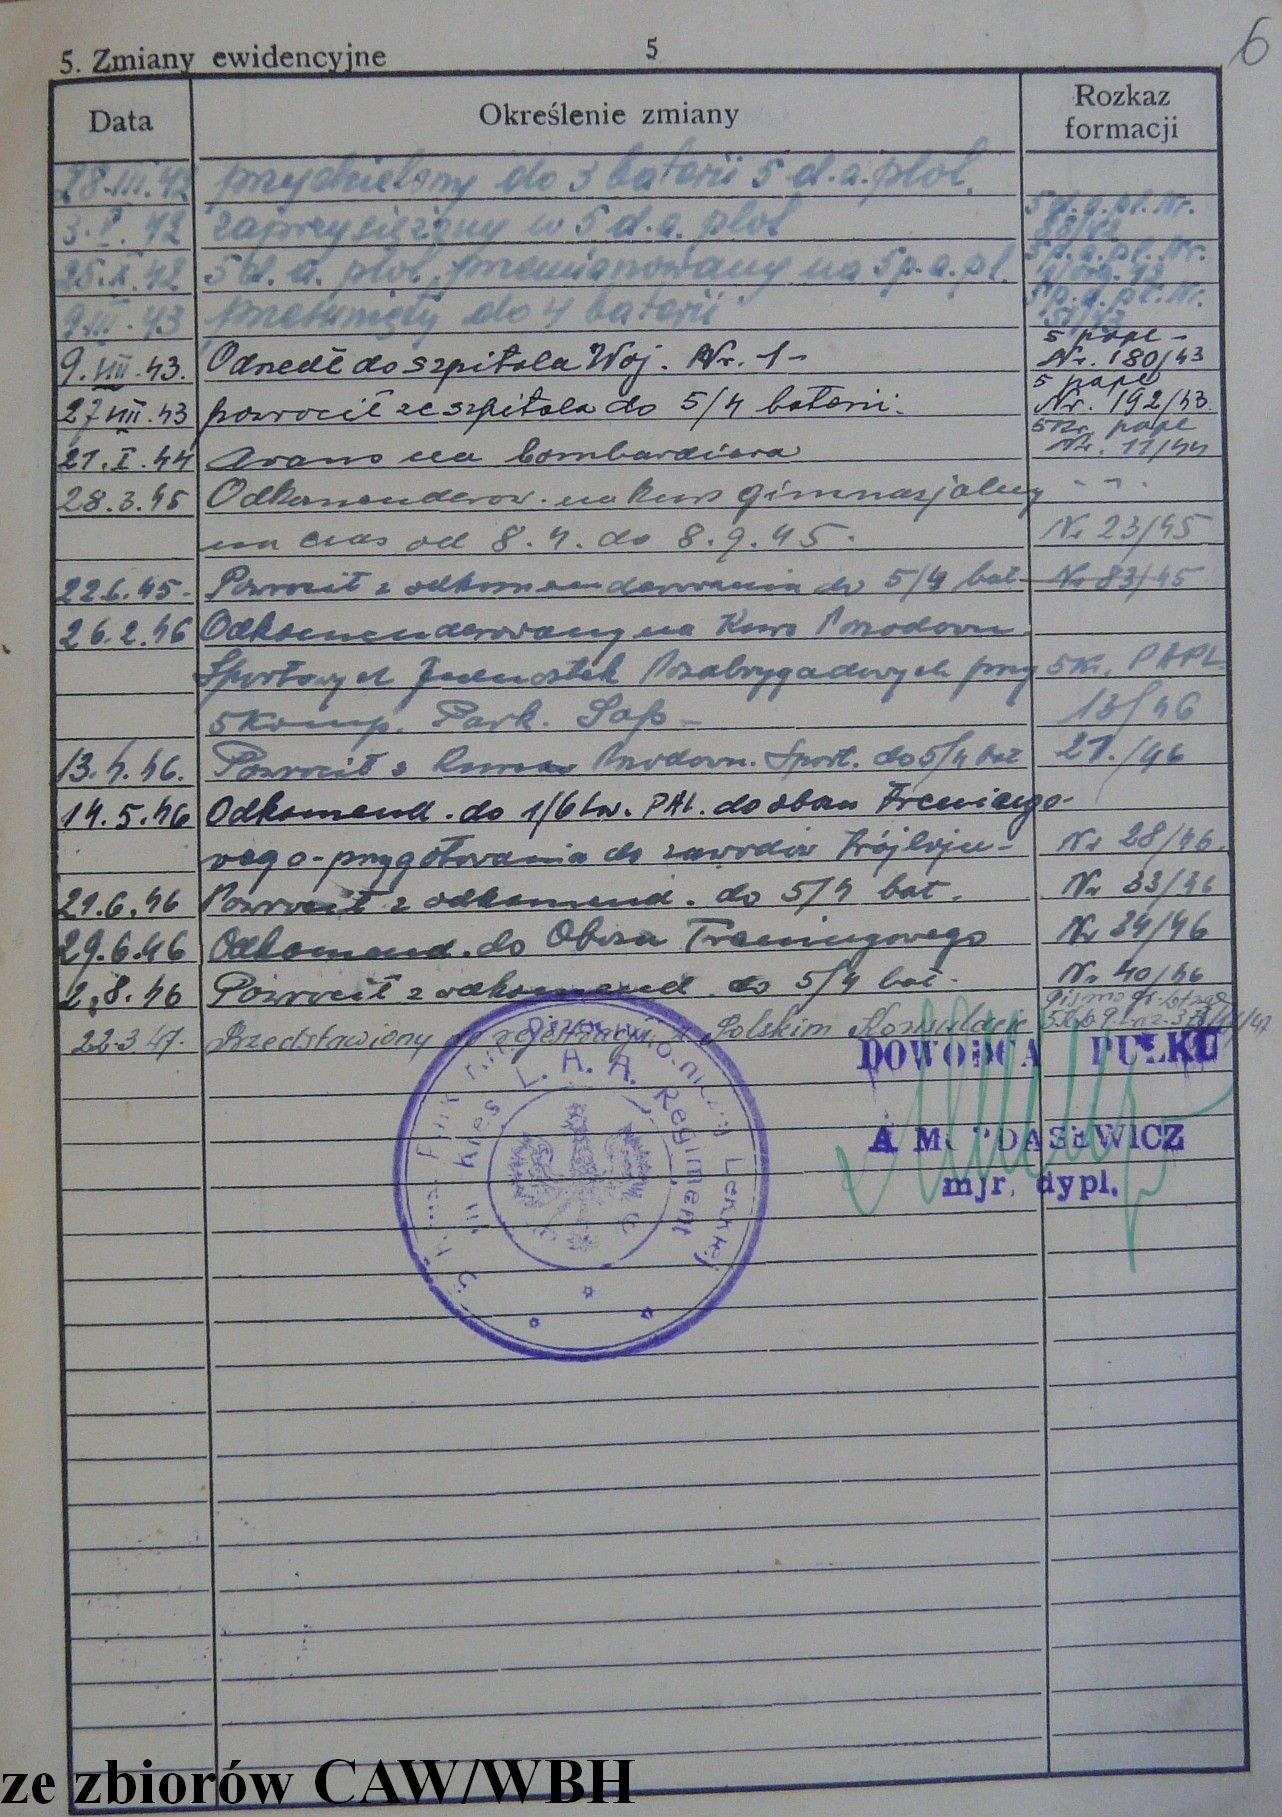 5. Zmiany ewidencyjne 5 6
Data Określenie zmiany Rozkaz formacji
28.III.42 przydzielony do 3 baterii 5 d.a.plot.
3.V.42 zaprzysiężony w 5 d.a. plot 5 d.a.pl. Nr.
25.X.42 5 d.a. plot. przemianowany na 5 p.a.pl. 5 p.a.pl. Nr.
9.III.43 przesunięty do 4 baterii 5 p.a.pl. Nr. 51/43
9.VIII.43. Odszedł do szpitala Woj. Nr. 1- 5 papl- Nr. 180/43
27 VIII.43 powrócił ze szpitala do 5/4 baterii. 5 papl Nr. 192/43.
21.I.44 Awans na bombardiera 5 Kr. papl Nr. 11/44
28.3.45 Odkomenderow. na kurs gimnazjalny - " -
na czas od 8.4. do 8.9.45. Nr 23/45
22.6.45- Powrócił z odkomenderowania do 5/4 bat- Nr 83/45
26.2.46 Odkomenderowany na Kurs Przodown.
Sportowych Jednostek Pozabrygadowych przy 5 Kr. PAPL
5 Komp. Park. Sap- 13/46
13.4.46. Powrócił z Kursu Przodown. Sport. do 5/4 bat 21./46
14.5.46 Odkomend. do 1/6 Lw. PAL. do obozu Treningo-
wego-przygotowania do zawodów Trójboju- Nr 28/46.
21.6.46 Powrócił z odkomend. do 5/4 bat. Nr 33/46
29.6.46 Odkomend. do Obozu Treningowego Nr 34/46
2.8.46 Powrócił z odkomend. do 5/4 bat- Nr 40/46
22.3.47. Przedstawiony do rejestracji w Polskim Konsulacie
DOWÓDCA PUŁKU
mjr. dypl.
5 Kres L. A. A. Regiment
ze zbiorów CAW/WBH